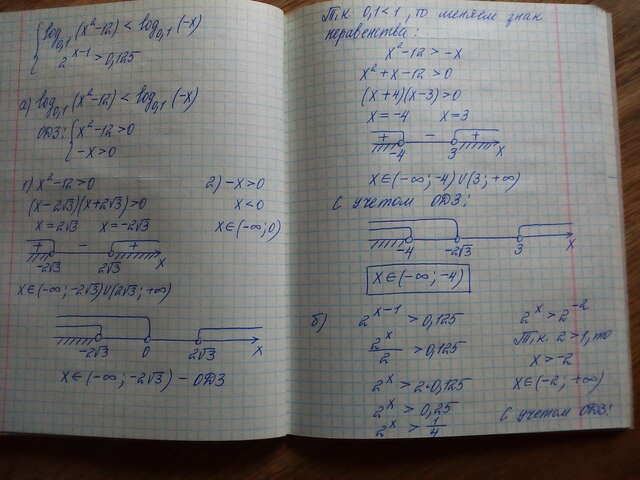 { log₀,₁(x²-12) < log₀,₁(-x)
2ˣ⁻¹ > 0,125
а) log₀,₁(x²-12) < log₀,₁(-x)
ОДЗ: { x²-12>0
-x>0
1) x²-12>0
(x-2√3)(x+2√3)>0
x=2√3 x=-2√3
+ - +
-2√3 2√3 x
x∈(-∞; -2√3)∪(2√3; +∞)
2) -x>0
x<0
x∈(-∞; 0)
-2√3 0 2√3 x
x∈(-∞; -2√3) - ОДЗ
Т.к. 0,1<1, то меняем знак
неравенства:
x²-12>-x
x²+x-12>0
(x+4)(x-3)>0
x=-4 x=3
+ - +
-4 3 x
x∈(-∞; -4)∪(3; +∞)
С учетом ОДЗ:
-4 -2√3 3 x
x∈(-∞; -4)
б) 2ˣ⁻¹ > 0,125
2ˣ/2 > 0,125
2ˣ > 2·0,125
2ˣ > 0,25
2ˣ > 1/4
2ˣ > 2⁻²
Т.к. 2>1, то
x>-2
x∈(-2; +∞)
С учетом ОДЗ: